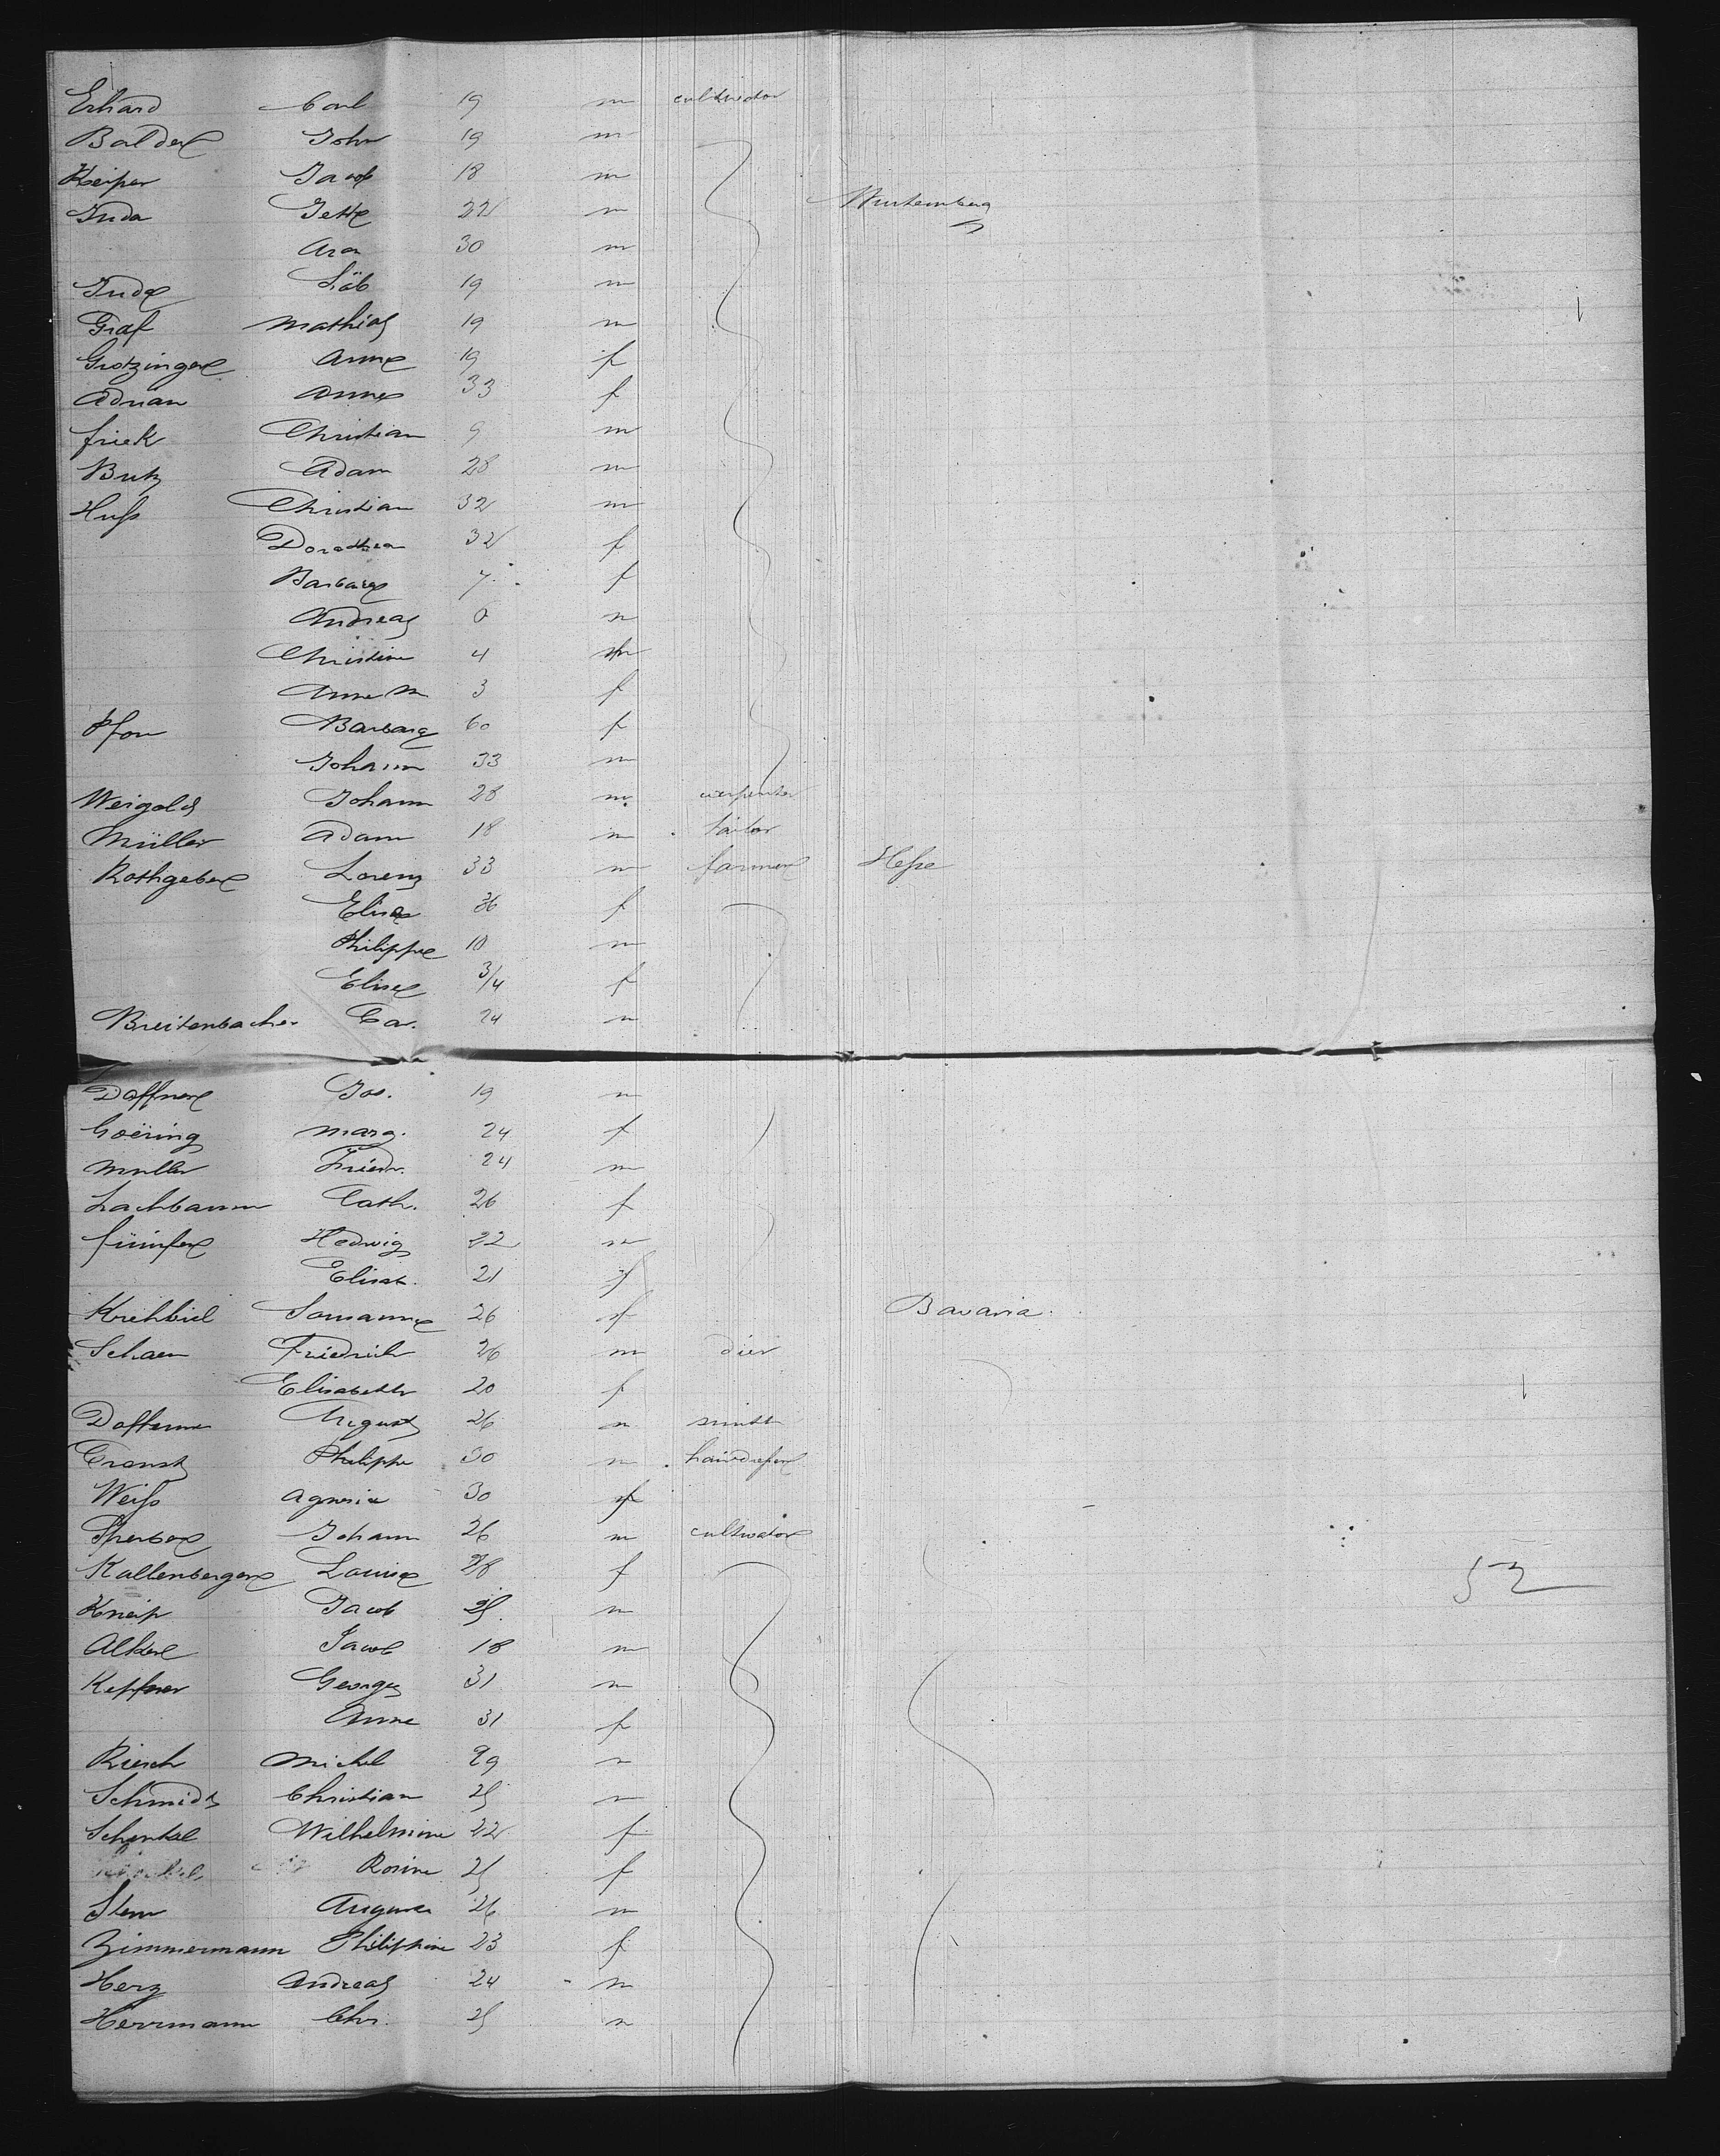 Erhard Carl 19 m cultivator
Balder John 19 m
Keiper Jacob 18 m
Juda Jette 22 m Wurtemberg
Aron 30 m
Juda Löb 19 m
Graf Mathias 19 m
Grotzinger Anne 19 f
Adrian Anna 33 f
Frick Christian 9 m
Butz Adam 28 m
Huss Christian 32 m
Dorothea 32 f
Barbara 7 f
Andreas 0 m
Christian 4 m
Anne M 3 f
Barbara 60 f
Johann 33 m
Weigold Johann 28 m carpenter
Müller Adam 18 m tailor
Rothgeber Lorenz 33 m farmer Hesse
Elisa 36 f
Philippe 10 m
Elise 3/4 f
Breitenbacher Ca. 24 m
Daffner Jos. 19 m
Goëring Marg. 24 f
Muller Friedr. 24 m
Lachbaum Cath. 26 f
Hedwig 22 m
Elisab. 21 f
Krehbiel Somanne 26 f Bavaria
Schaen Friedrich 26 m dier
Elisabeth 20 f
August 26 m smith
Philippe 30 m hairdresser
Weiss 30 f
Sperber Johann 26 m cultivator
Kallenberger Louise 28 f 52
Kneip Jacob 25 m
Alker Jacob 18 m
Keffner Georges 31 m
Anne 31 f
Riesch Michel 29 m
Schmidt Christian 25 m
Schenkel Wilhelmine 22 f
Rosine 25 f
Stern August 26 m
Zimmermann Philippine 23 f
Herz Andreas 24 m
Herrmann Chr. 25 m